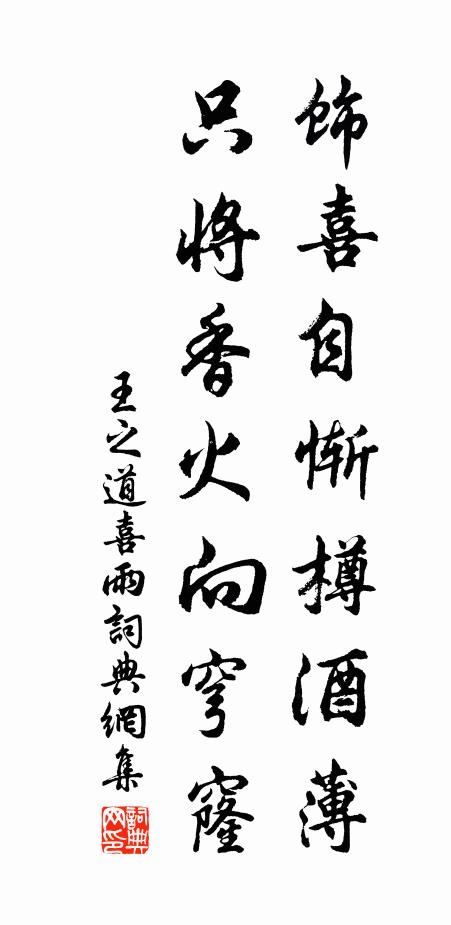 饰喜自惭樽酒薄
只将香火向穹窿
王之道喜雨詞典網集
詞典
网印